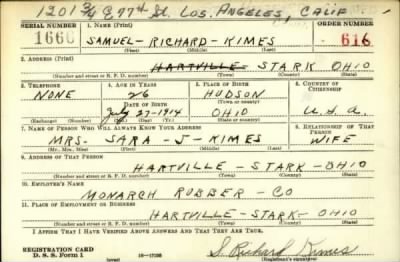 1201 3/4 E 97th St. Los. Angeles, Calif
SERIAL NUMBER 1. NAME (Print) ORDER NUMBER
1660 SAMUEL - RICHARD - KIMES 616
(First) (Middle) (Last)
2. ADDRESS (Print)
HARTVILLE STARK OHIO
(Number and street or R. F. D. number) (Town) (County) (State)
3. TELEPHONE 4. AGE IN YEARS 5. PLACE OF BIRTH 6. COUNTRY OF CITIZENSHIP
NONE 26 HUDSON
DATE OF BIRTH (Town or county)
July 27-1914 OHIO U.S.A
(Exchange) (Number) (Mo.) (Day) (Yr.) (State or country)
7. NAME OF PERSON WHO WILL ALWAYS KNOW YOUR ADDRESS 8. RELATIONSHIP OF THAT PERSON
MRS - SARA - J - KIMES WIFE
(Mr., Mrs., Miss) (First) (Middle) (Last)
9. ADDRESS OF THAT PERSON
HARTVILLE - STARK - OHIO
(Number and street or R. F. D. number) (Town) (County) (State)
10. EMPLOYER'S NAME
MONARCH RUBBER - CO
11. PLACE OF EMPLOYMENT OR BUSINESS
HARTVILLE - STARK - OHIO
(Number and street or R. F. D. number) (Town) (County) (State)
I AFFIRM THAT I HAVE VERIFIED ABOVE ANSWERS AND THAT THEY ARE TRUE.
REGISTRATION CARD
D. S. S. Form 1 (over) S. Richard Kimes
(Registrant's signature)